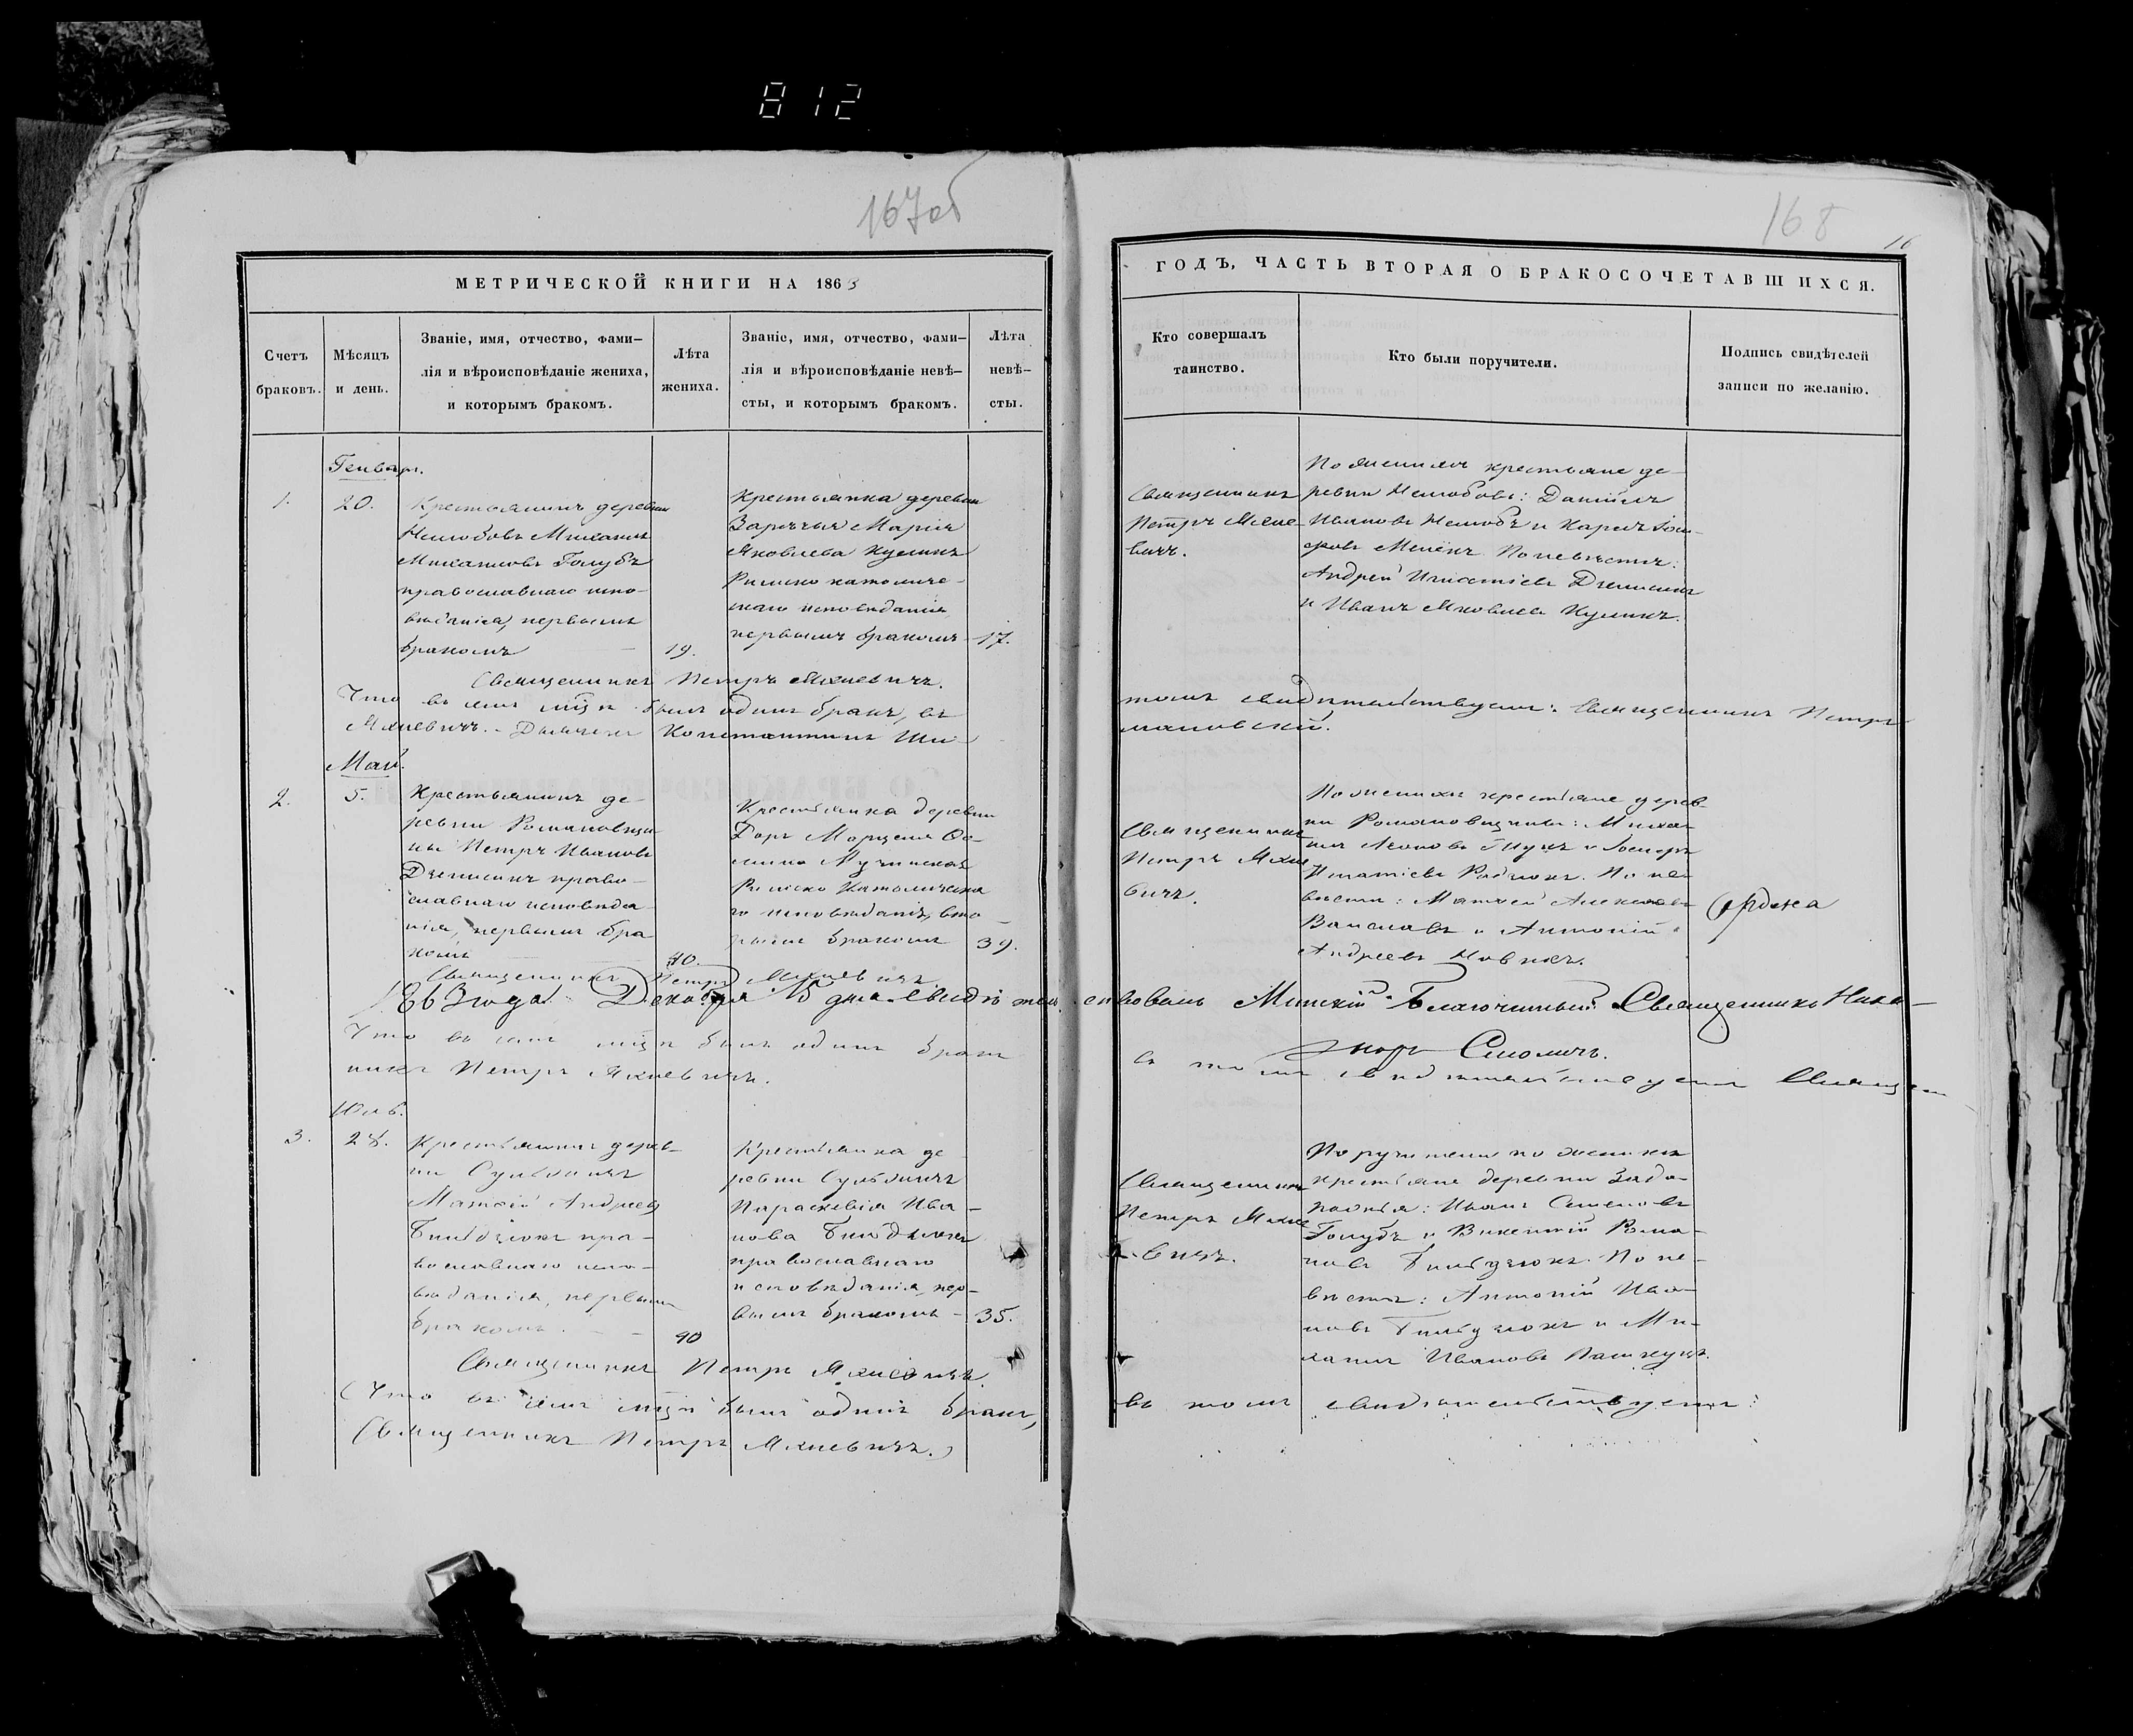 812
167об
168
16
МЕТРИЧЕСКОЙ КНИГИ НА 1863
ГОДЪ, ЧАСТЬ ВТОРАЯ О БРАКОСОЧЕТАВШИХСЯ.
Счетъ
браковъ.
Мѣсяцъ
и день.
Званіе, имя, отчество, фами-
лія и вѣроисповѣданіе жениха,
и которымъ бракомъ.
Лѣта
жениха.
Званіе, имя, отчество, фами-
лія и вѣроисповѣданіе невѣ-
сты, и которымъ бракомъ.
Лѣта
невѣ-
сты.
Кто совершалъ
таинство.
Кто были поручители.
Подпись свидѣтелей
записи по желанію.
Генварь.
1.
20.
Крестьянинъ деревни
Михаилъ
Михаиловъ Голубъ
православнаго испо-
вѣданія, первымъ
бракомъ
19.
Крестьянка деревни
Заричья Марія
Яковлева Куликъ
Римско католиче-
скаго исповѣданія
первымъ бракомъ
17.
Священникъ
Петръ Махне-
вичъ.
По женихѣ крестьяне де-
ревни Даніилъ
Ивановъ и Карлъ Іоси-
фовъ По невѣстѣ:
Андрей Игнатіевъ Дземянъ
и Иванъ Яковлевъ Куликъ.
Священникъ Петръ Махневичъ.
Что въ семъ мцѣ былъ одинъ бракъ, въ
томъ свидѣтельствуемъ: Священникъ Петръ
Махневичъ. Дьячекъ Константинъ Ши-
мановскій.
Май.
2.
5.
Крестьянинъ де-
ревни Романовщи-
ны Петръ Ивановъ
право-
славнаго исповѣда-
нія, первымъ бра-
комъ
40.
Крестьянка деревни
Марцеля Ос-
Римско Католическа-
го исповѣданія, вто-
рымъ бракомъ
39.
Священникъ
Петръ Махне
вичъ.
По женихѣ крестьяне дерев-
ни Романовщины: Миха-
илъ и Іосифъ
Игнатіевъ Радзюкъ. По не-
вѣстѣ: Матвей Алексѣевъ
и Антоній
Андреевъ Новикъ.
Священникъ Петръ Махневичъ.
1863 года Декабря 15 дня свидѣтельствовалъ Минскій Благочинный Священникъ Ника-
норъ Смоличъ.
Что въ семъ мцѣ былъ одинъ бракъ
въ томъ свидѣтельствуемъ Священ
никъ Петръ Махневичъ.
Юль.
3.
28.
Крестьянинъ дерев-
ни
Матвій Андреевъ
пра-
вославнаго испо-
вѣданія, первымъ
бракомъ.
40
Крестьянка де-
ревни
Параскевія Ива-
нова
православнаго
исповѣданія, пер-
вымъ бракомъ
35.
Священникъ
Петръ Махне
вичъ.
Поручители по женихѣ
крестьяне деревни
Иванъ Семеновъ
Голубъ и Викентій Рома-
новъ По не-
вѣстѣ: Антоній Ива-
новъ и Ми-
хаилъ Ивановъ
Священникъ Петръ Махневичъ.
(Что въ семъ мцѣ былъ одинъ бракъ,
въ томъ свидѣтельствуемъ:
Священникъ Петръ Махневичъ.)